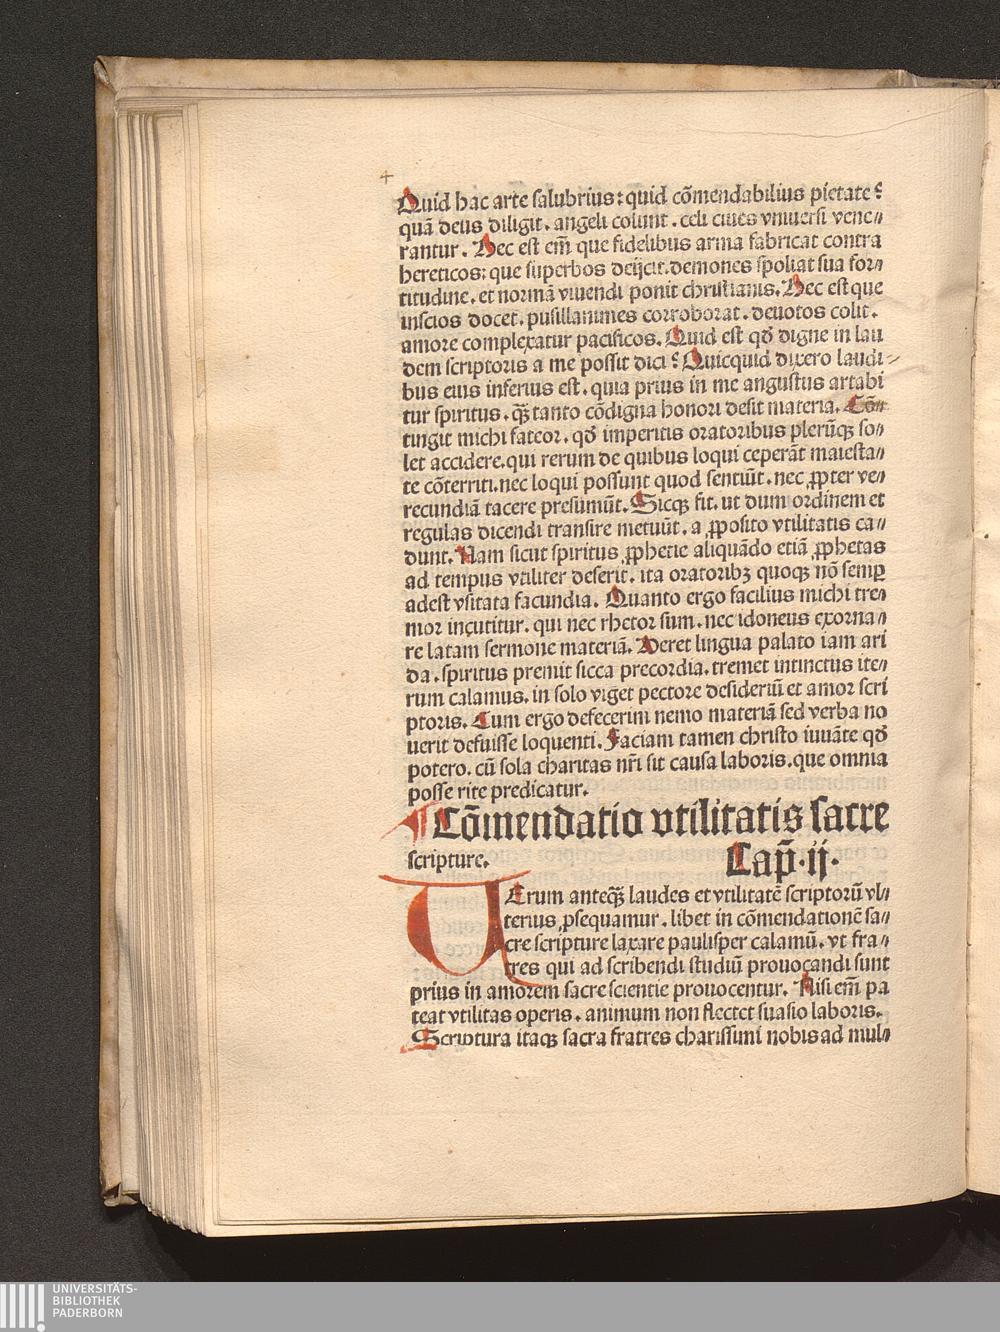 4
Quid hac arte salubrius: quid cōmendabilius pietate?
quā deus diligit. angeli colunt. celi ciues vniuersi vene⸗
rantur. Hec est em̄ que fidelibus arma fabricat contra
hereticos: que superbos deijcit. demones spoliat sua for⸗
titudine. et normā viuendi ponit christianis. Hec est que
inscios docet. pusillanimes corroborat. deuotos colit.
amore complexatur pacificos. Quid est qd̄ digne in lau
dem scriptoris a me possit dici? Quicquid dixero laudi⸗
bus eius inferius est. quia prius in me angustus artabi
tur spiritus. qꝫ tanto cōdigna honori desit materia. Cō⸗
tingit michi fateor. qd̄ imperitis oratoribus plerūqꝫ so⸗
let accidere. qui rerum de quibus loqui ceperāt maiesta⸗
te cōterriti. nec loqui possunt quod sentiūt. nec ꝓpter ve⸗
recundiā tacere presumūt. Sicqꝫ fit. ut dum ordinem et
regulas dicendi transire metuūt. a ꝓposito vtilitatis ca⸗
dunt. Nam sicut spiritus ꝓphetie aliquādo etiā ꝓphetas
ad tempus vtiliter deserit. ita oratoribꝫ quoqꝫ nō semꝑ
adest vsitata facundia. Quanto ergo facilius michi tre⸗
mor incutitur. qui nec rhetor sum. nec idoneus exorna⸗
re latam sermone materiā. Heret lingua palato iam ari
da. spiritus premit sicca precordia. tremet intinctus ite⸗
rum calamus. in solo viget pectore desideriū et amor scri
ptoris. Cum ergo defecerim nemo materiā sed verba no
uerit defuisse loquenti. Faciam tamen christo iuuāte qd̄
potero. cū sola charitas nr̄i sit causa laboris. que omnia
posse rite predicatur.
¶ Cōmendatio vtilitatis sacre
scripture. Cap̄. ij.
VErum anteqꝫ laudes et vtilitatē scriptorū vl⸗
terius ꝓsequamur. libet in cōmendationē sa⸗
cre scripture laxare paulisper calamū. vt fra⸗
tres qui ad scribendi studiū prouocandi sunt
prius in amorem sacre scientie prouocentur. Nisi em̄ pa
teat vtilitas operis. animum non flectet suasio laboris.
Scriptura itaqꝫ sacra fratres charissimi nobis ad mul⸗
UNIVERSITÄTS-
BIBLIOTHEK
PADERBORN